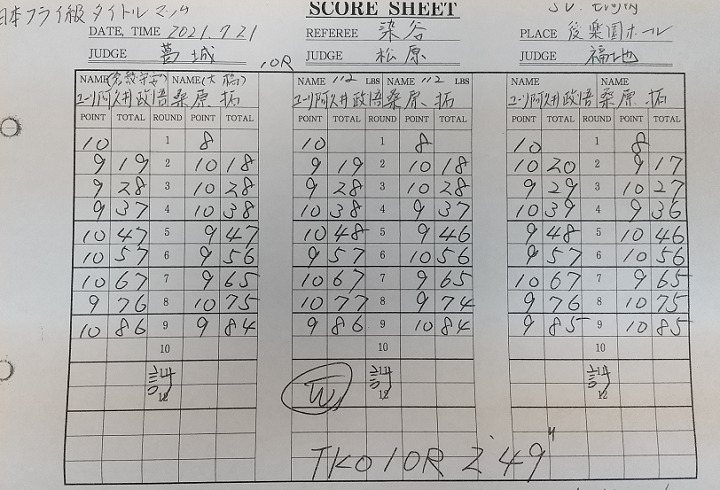 日本フライ級タイトルマッチ
SCORE SHEET
DATE, TIME 2021.7.21 REFEREE 染谷 PLACE 後楽園ホール
JUDGE 葛城 10R JUDGE 松原 JUDGE 福地
NAME (倉敷守安) NAME (大橋) NAME 112 LBS NAME 112 LBS NAME NAME
ユーリ阿久井政悟 桑原 拓 ユーリ阿久井政悟 桑原 拓 ユーリ阿久井政悟 桑原 拓
POINT TOTAL ROUND POINT TOTAL POINT TOTAL ROUND POINT TOTAL POINT TOTAL ROUND POINT TOTAL
10 1 8 10 1 8 10 1 8
9 19 2 10 18 9 19 2 10 18 10 20 2 9 17
9 28 3 10 28 9 28 3 10 28 9 29 3 10 27
9 37 4 10 38 10 38 4 9 37 10 39 4 9 36
10 47 5 9 47 10 48 5 9 46 9 48 5 10 46
10 57 6 9 56 9 57 6 10 56 9 57 6 10 56
10 67 7 9 65 10 67 7 9 65 10 67 7 9 65
9 76 8 10 75 10 77 8 9 74 9 76 8 10 75
10 86 9 9 84 9 86 9 10 84 9 85 9 10 85
10 10 10
計 計 計
12 W 12 12
TKO 10R 2'49"